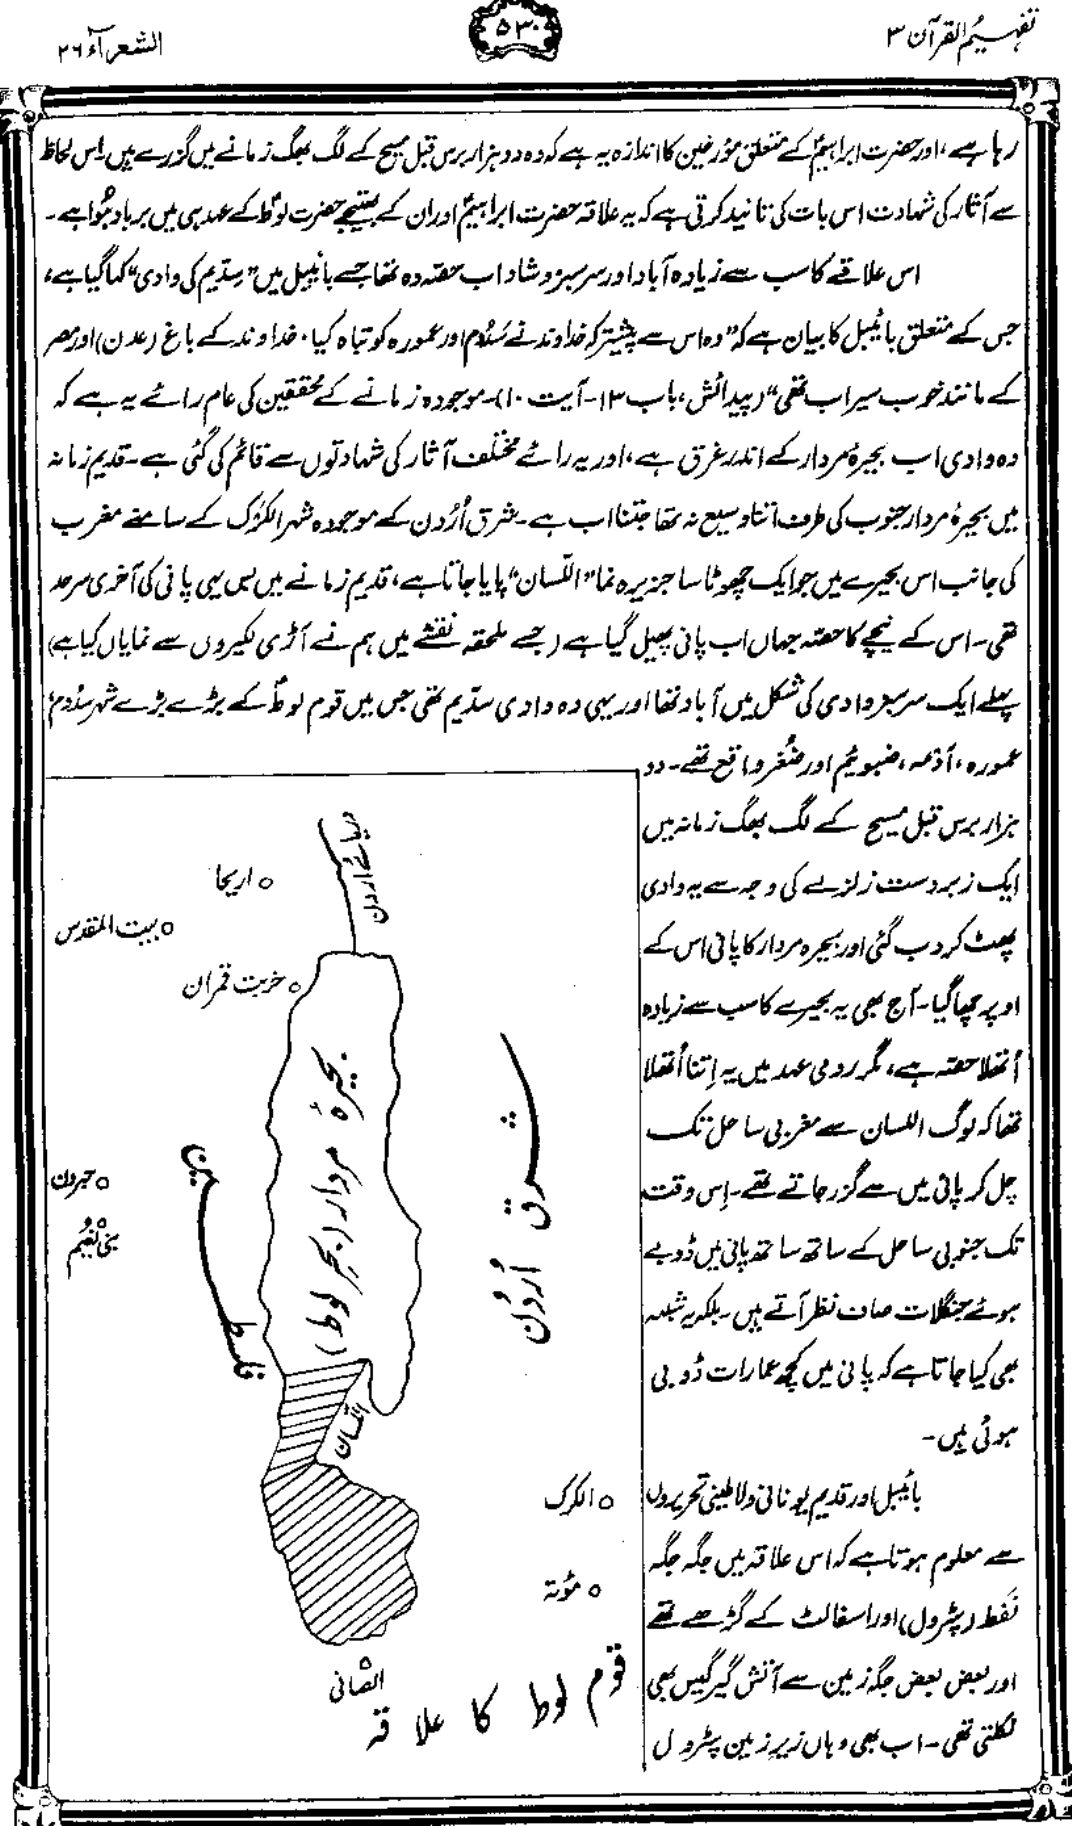 تفہیم القرآن ۳
۵۳۰
الشعرآء ۲۶
رہا ہے، اور حضرت ابراہیمؑ کے متعلق مؤرخین کا اندازہ یہ ہے کہ وہ دو ہزار برس قبل مسیح کے لگ بھگ زمانے میں گزرے ہیں۔ اِس لحاظ
سے آثار کی شہادت اس بات کی تائید کرتی ہے کہ یہ علاقہ حضرت ابراہیمؑ اور ان کے بھتیجے حضرت لوطؑ کے عہد ہی میں برباد ہُوا ہے۔
اس علاقے کا سب سے زیادہ آباد اور سرسبز و شاداب حصّہ وہ تھا جسے بائیبل میں ”سِدّیم کی وادی“ کہا گیا ہے،
جس کے متعلق بائیبل کا بیان ہے کہ ”وہ اس سے پیشتر کہ خداوند نے سَدُوم اور عمورہ کو تباہ کیا، خداوند کے باغ (عدن) اور مصر
کے مانند خوب سیراب تھی“ (پیدائش، باب ۱۳۔ آیت ۱۰)۔ موجودہ زمانے کے محققین کی عام رائے یہ ہے کہ
وہ وادی اب بحیرۂ مردار کے اندر غرق ہے، اور یہ رائے مختلف آثار کی شہادتوں سے قائم کی گئی ہے۔ قدیم زمانہ
میں بحیرۂ مردار جنوب کی طرف اتنا وسیع نہ تھا جتنا اب ہے۔ شرق اُرْدن کے موجودہ شہر الکَرْک کے سامنے مغرب
کی جانب اس بحیرے میں جو ایک چھوٹا سا جزیرہ نما ”اللّسان“ پایا جاتا ہے، قدیم زمانے میں بس یہی پانی کی آخری سرحد
تھی۔ اس کے نیچے کا حصّہ جہاں اب پانی پھیل گیا ہے (جسے ملحقہ نقشے میں ہم نے آڑی لکیروں سے نمایاں کیا ہے)
پہلے ایک سرسبز وادی کی شکل میں آباد تھا اور یہی وہ وادی سدّیم تھی جس میں قوم لوطؑ کے بڑے بڑے شہر سَدُوم،
عمورہ، اَدْمہ، ضبوئیم اور ضُغر واقع تھے۔ دو
ہزار برس قبل مسیح کے لگ بھگ زمانہ میں
ایک زبردست زلزلے کی وجہ سے یہ وادی
پھٹ کر دب گئی اور بحیرہ مردار کا پانی اس کے
اوپر چھا گیا۔ آج بھی یہ بحیرے کا سب سے زیادہ
اُتھلا حصّہ ہے، مگر رومی عہد میں یہ اِتنا اُتھلا
تھا کہ لوگ اللسان سے مغربی ساحل تک
چل کر پانی میں سے گزر جاتے تھے۔ اِس وقت
تک جنوبی ساحل کے ساتھ ساتھ پانی میں ڈوبے
ہوئے جنگلات صاف نظر آتے ہیں۔ بلکہ یہ شبہہ
بھی کیا جاتا ہے کہ پانی میں کچھ عمارات ڈوبی
ہوئی ہیں۔
بائیبل اور قدیم یونانی و لاطینی تحریروں
سے معلوم ہوتا ہے کہ اس علاقہ میں جگہ جگہ
نَفط (پٹرول) اور اسفالٹ کے گڑھے تھے
اور بعض بعض جگہ زمین سے آتش گیر گیس بھی
نکلتی تھی۔ اب بھی وہاں زیرِ زمین پٹرول
دریائے اردن
اریحا
بیت المقدس
خربت قمران
بحیرۂ مردار (بحرِ لوط)
شرق اُردُن
فلسطین
حبرون
بنی نُعیم
اللسان
الکرک
مؤتة
الصّافی
قوم لوط کا علاقہ